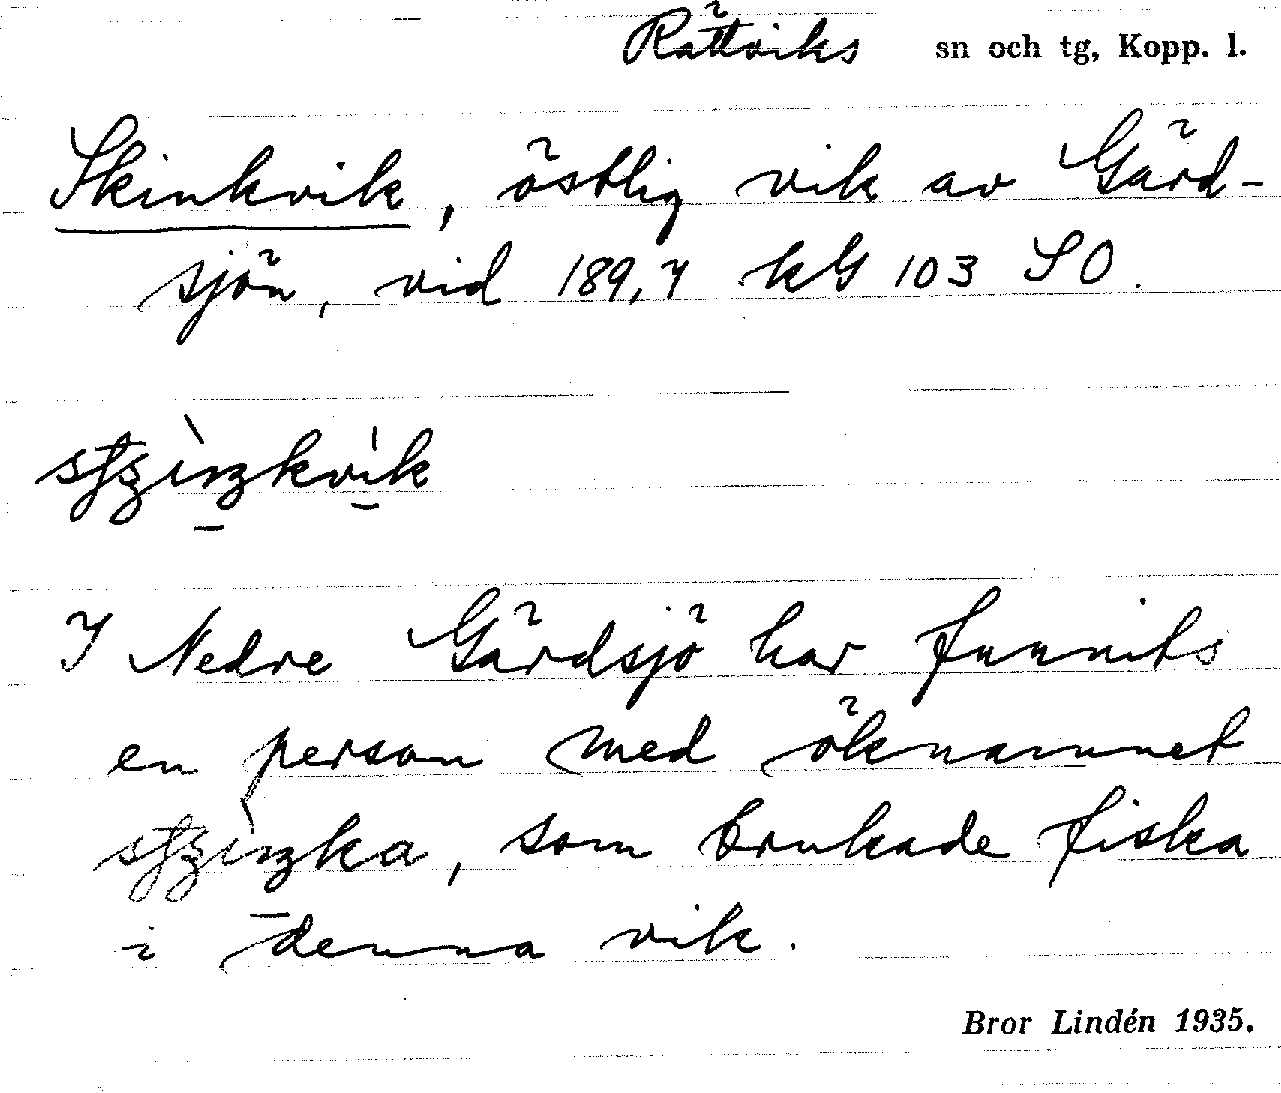 Rättviks sn och tg, Kopp. l.
Skinkvik, östlig vik av Gärd-
sjön, vid 189,7 kG 103 SO.
I Nedre Gärdsjö har funnits
en person med öknamnet
som brukade fiska
i denna vik.
Bror Lindén 1935.